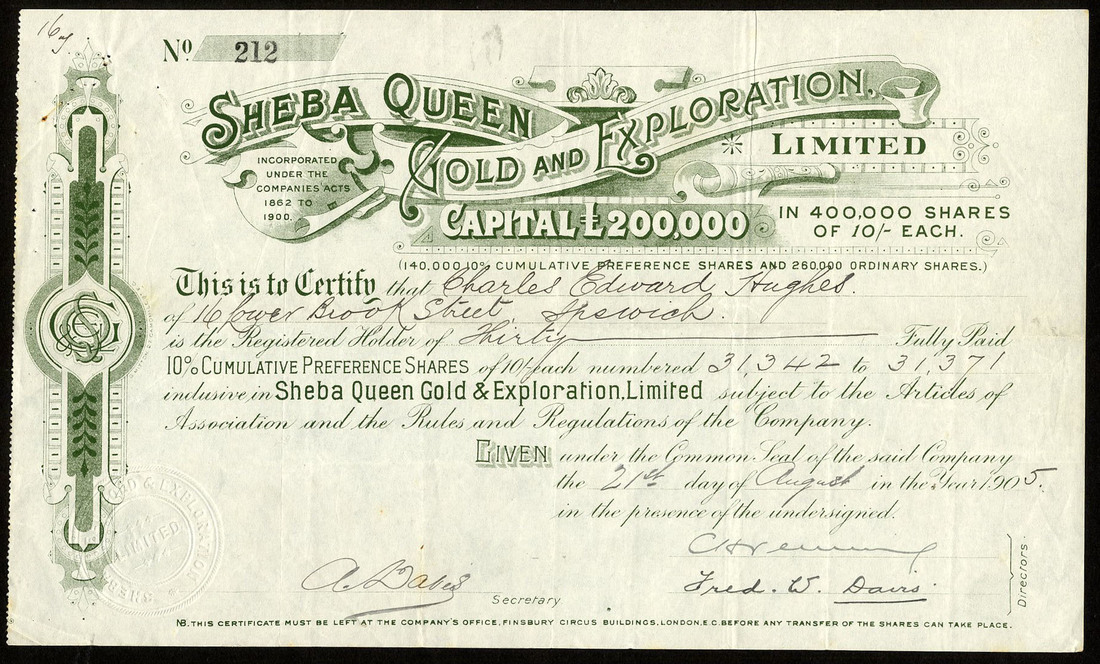 No 212
SHEBA QUEEN
GOLD AND EXPLORATION.
LIMITED
INCORPORATED
UNDER THE
COMPANIES ACTS
1862 TO
1900.
CAPITAL £200,000
IN 400,000 SHARES
OF 10/- EACH.
(140,000 10% CUMULATIVE PREFERENCE SHARES AND 260,000 ORDINARY SHARES.)
This is to Certify that Charles Edward Hughes.
of 16 Lower Brook Street, Ipswich.
is the Registered Holder of Thirty Fully Paid
10% CUMULATIVE PREFERENCE SHARES of 10/- each numbered 31,342 to 31,371
inclusive in Sheba Queen Gold & Exploration, Limited subject to the Articles of
Association and the Rules and Regulations of the Company.
GIVEN under the Common Seal of the said Company
the 21st day of August in the Year 1905.
in the presence of the undersigned.
Fred. W. Davis
Directors.
A. Davis
Secretary
GOLD & EXPLORATION
LIMITED
SHEBA
NB. THIS CERTIFICATE MUST BE LEFT AT THE COMPANY'S OFFICE, FINSBURY CIRCUS BUILDINGS, LONDON, E.C. BEFORE ANY TRANSFER OF THE SHARES CAN TAKE PLACE.